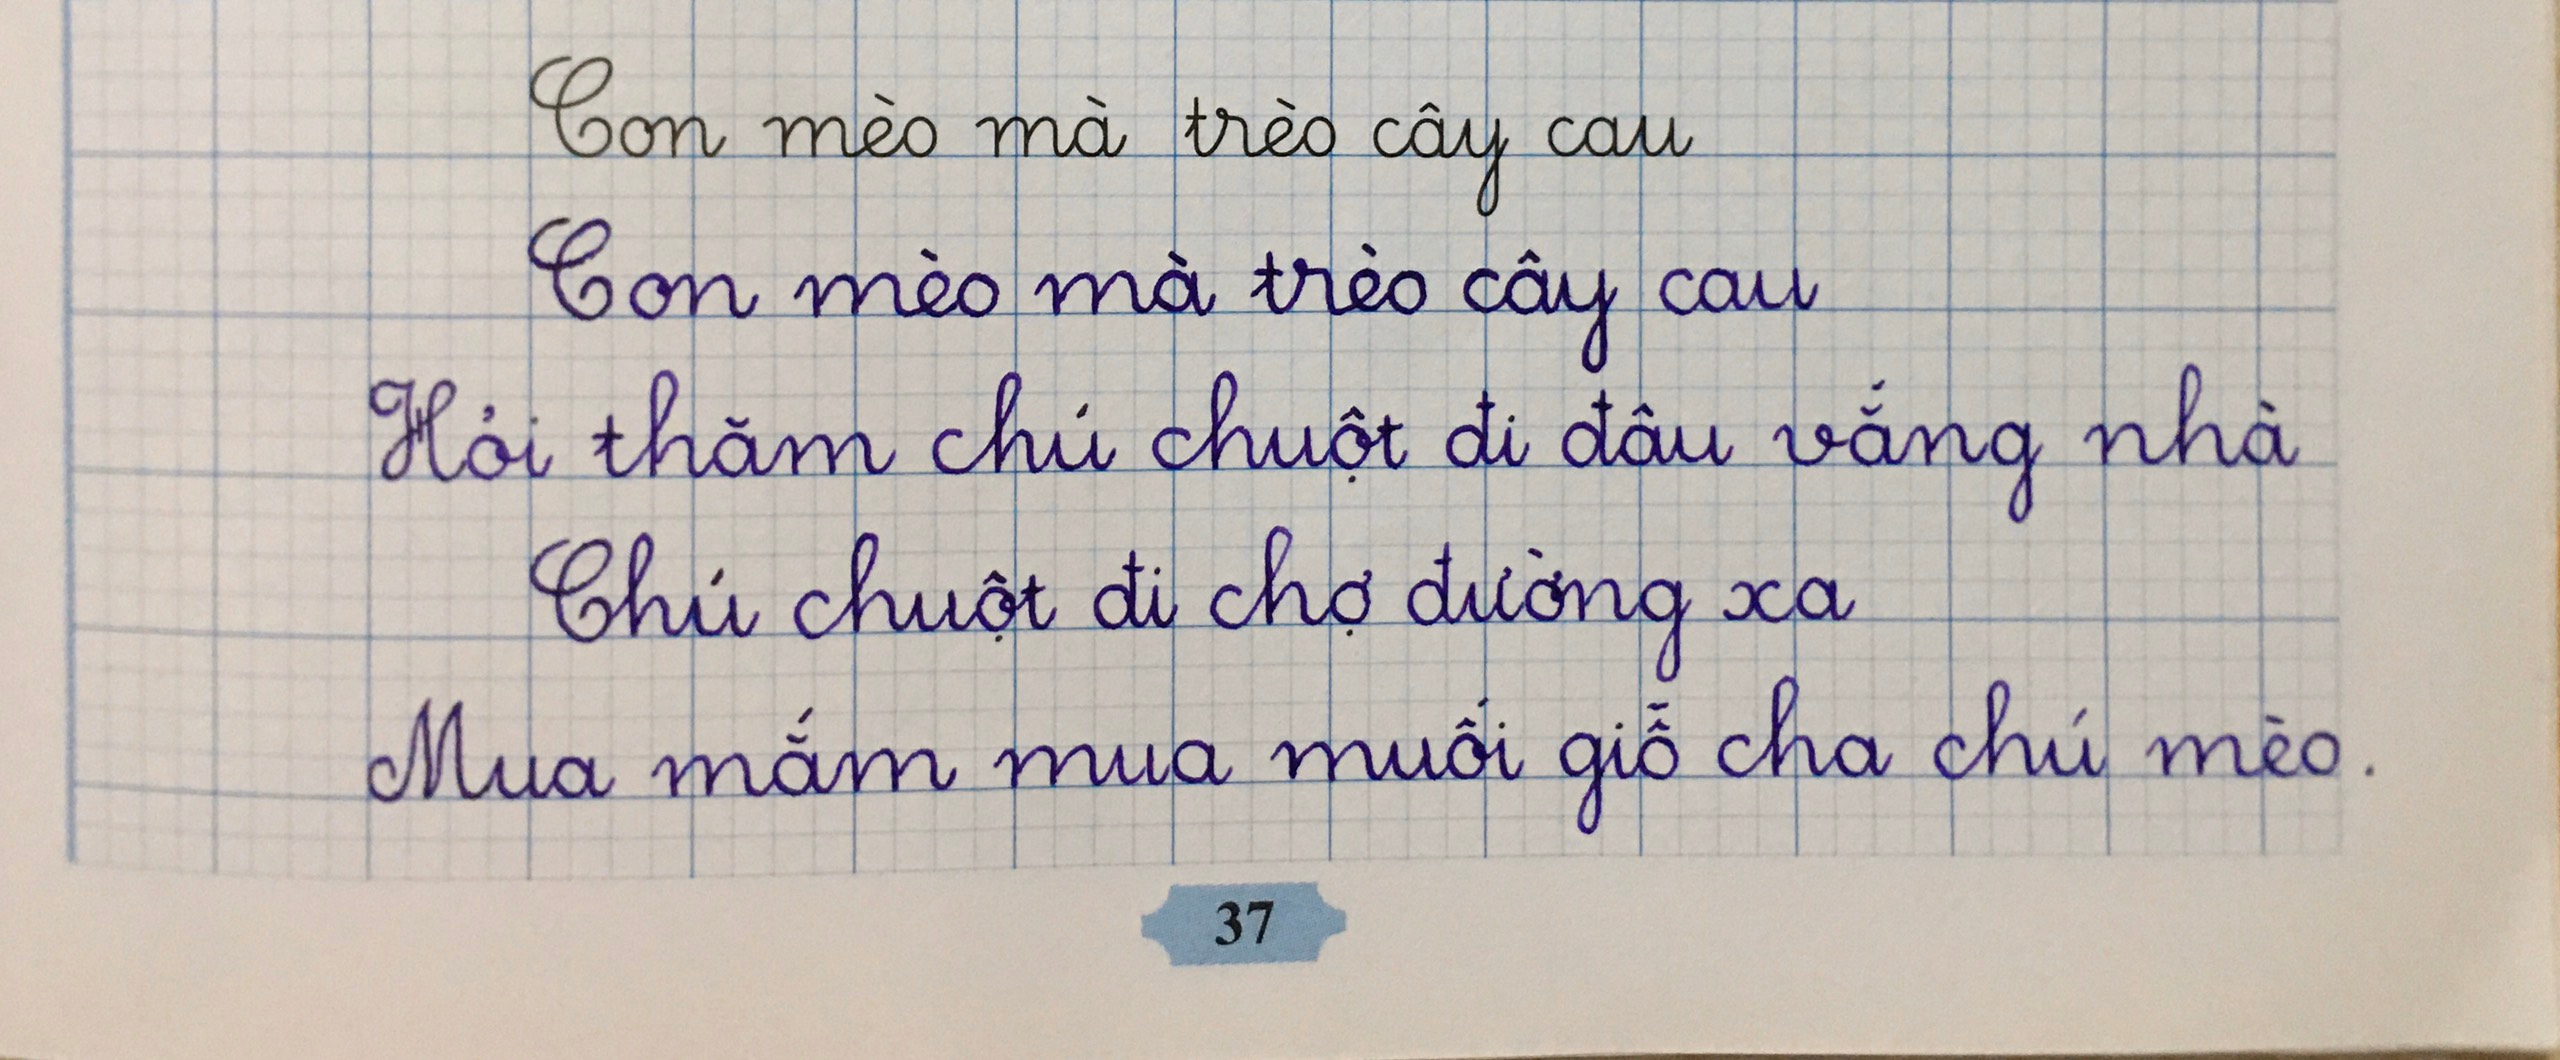 Con mèo mà trèo cây cau
Con mèo mà trèo cây cau
Hỏi thăm chú chuột đi đâu vắng nhà
Chú chuột đi chợ đường xa
Mua mắm mua muối giỗ cha chú mèo.
37